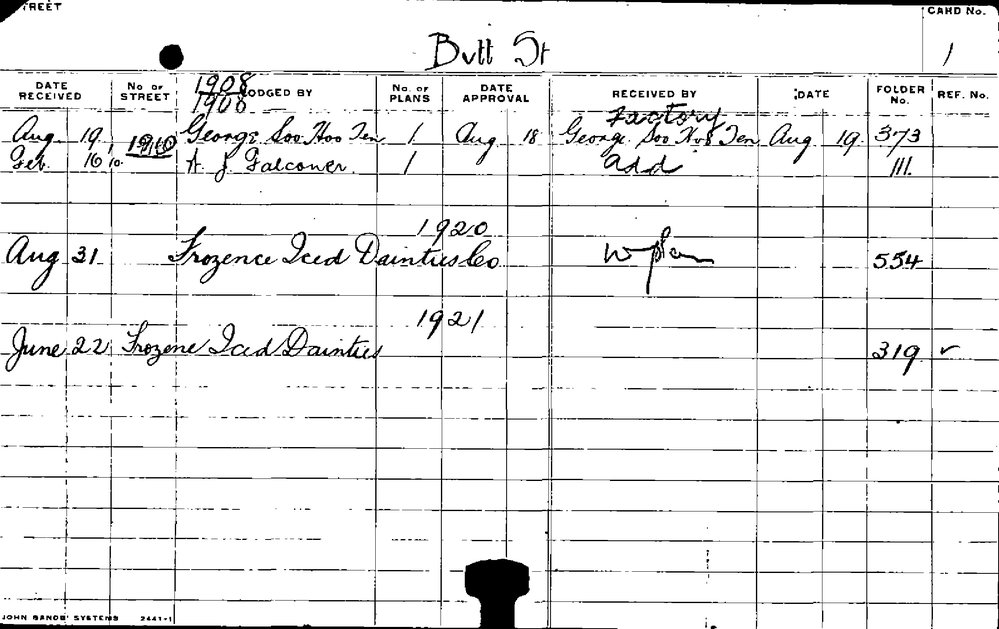 STREET
CARD No.
Butt St
1
DATE RECEIVED No. OF STREET LODGED BY No. OF PLANS DATE APPROVAL RECEIVED BY DATE FOLDER No. REF. No.
1908
1908
Factory
Aug 19 George Soo Hoo Ten 1 Aug 18 George Soo Hoo Ten Aug 19 373
1910
Feb. 16 10. A. J. Falconer. 1 add 111.
1920
Aug 31 Frozence Iced Dainties Co W plan 554
1921
June 22 Frozene Iced Dainties 319 ✓
JOHN SANDS' SYSTEMS 2441-1